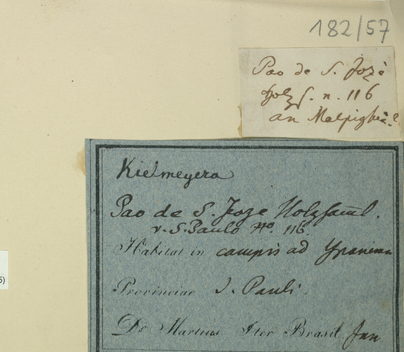 182/57
Pao de S. Jozé
Holz S. n. 116
an Malpighia?
Kielmeyera
Pao de S. Joze Holzsaml.
v. S. Paulo No. 116.
Habitat in campis ad Ypanema
Provinciae S. Pauli.
Dr Martius Iter Brasil Jan
5)